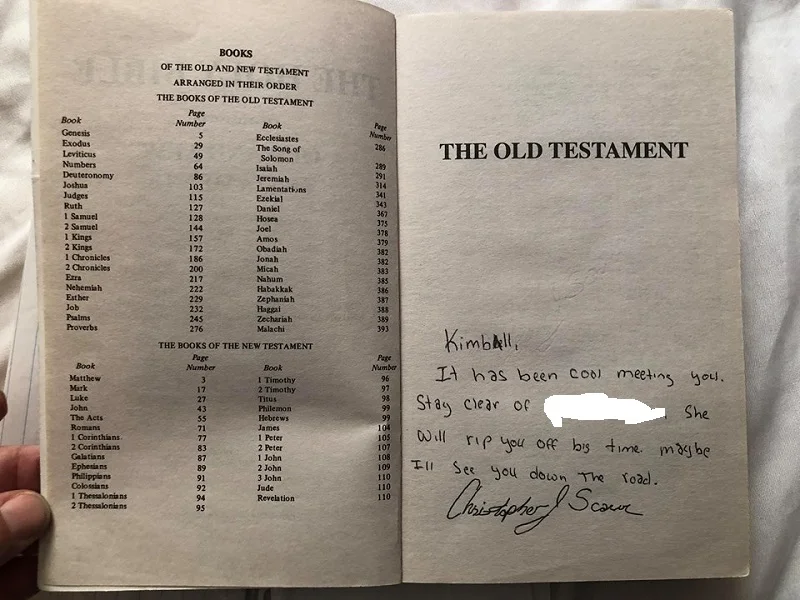 BOOKS
OF THE OLD AND NEW TESTAMENT
ARRANGED IN THEIR ORDER
THE BOOKS OF THE OLD TESTAMENT
Book Page Number
Genesis 5
Exodus 29
Leviticus 49
Numbers 64
Deuteronomy 86
Joshus 103
Judges 115
Ruth 127
1 Samuel 128
2 Samuel 144
1 Kings 157
2 Kings 172
1 Chronicles 186
2 Chronicles 200
Ezra 217
Nehemiah 222
Esther 229
Job 232
Psalms 245
Proverbs 276
Book Page Number
Ecclesiastes 286
The Song of
Solomon 289
Isaiah 291
Jeremiah 314
Lamentations 341
Ezekial 343
Daniel 367
Hosea 375
Joel 378
Amos 379
Obadiah 382
Jonah 382
Micah 383
Nahum 385
Habakkak 386
Zephaniah 387
Haggai 388
Zechariah 389
Malachi 393
THE BOOKS OF THE NEW TESTAMENT
Book Page Number
Matthew 3
Mark 17
Luke 27
John 43
The Acts 55
Romans 71
1 Corinthians 77
2 Corinthians 83
Galatians 87
Ephesians 89
Philippians 91
Colossians 92
1 Thessalonians 94
2 Thessalonians 95
Book Page Number
1 Timothy 96
2 Timothy 97
Titus 98
Philemon 99
Hebrews 99
James 104
1 Peter 105
2 Peter 107
1 John 108
2 John 109
3 John 110
Jude 110
Revelation 110
THE OLD TESTAMENT
Kimball,
It has been cool meeting you.
Stay clear of . She
will rip you off big time. maybe
Ill see you down the road.
Christopher J